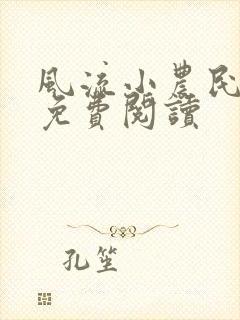 風流小農民
免費閱讀
孔笙